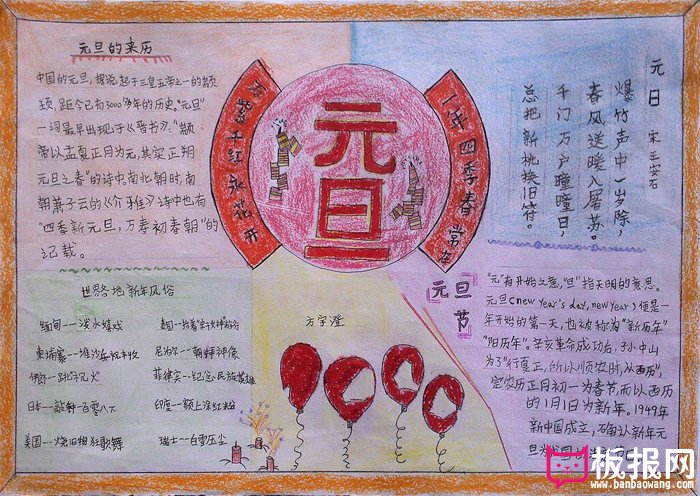 元旦的来历
中国的元旦,据说起于三皇五帝之一的颛
顼,距今已有3000多年的历史。"元旦"
一词最早出现于《晋书》,"颛
帝以孟夏正月为元,其实正朔
元旦之春"的诗中。南北朝时,南
朝萧子云的《介雅》诗中也有
"四季新元旦,万寿初春朝"的
记载。
万紫千红永花开
元旦
一年四季春常在
元日 宋 王安石
爆竹声中一岁除,
春风送暖入屠苏。
千门万户曈曈日,
总把新桃换旧符。
世界各地新年风俗
缅甸--泼水嬉戏
柬埔寨--堆沙
伊朗--跳
日本--敲钟一百零八下
美国--烧旧相狂歌舞
泰国--抬着
尼泊尔--朝拜神像
菲律宾--纪念民族英雄
印度--额上涂红粉
瑞士--白雪压尘
方宇澄
元旦节
"元"有开始之意,"旦"指天明的意思。
元旦(new year's day, new year)便是一
年开始的第一天,也被称为"新历年"
"阳历年"。辛亥革命成功后,孙中山
为了"行夏正,所以顺农时,从西历",
定农历正月初一为春节,而以西历
的1月1日为新年。1949年
新中国成立,
确认新年元
旦为
板报网
www.banbaowang.com